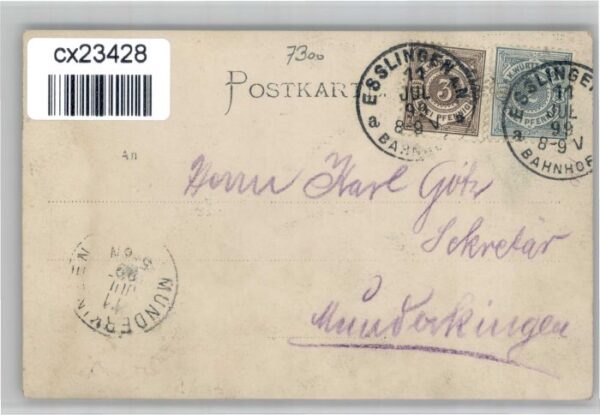 cx23428
7300
POSTKAR
ESSLINGEN
11
JUL
99
8-9 V
a
BAHNH
3
PFENNIG
K.WÜRT
ESSLINGEN
11
JUL
99
8-9 V
a
BAHNHOF
An
Herrn Karl Götz
Sekretär
Munderkingen
MUNDERKINGEN
11
JUL